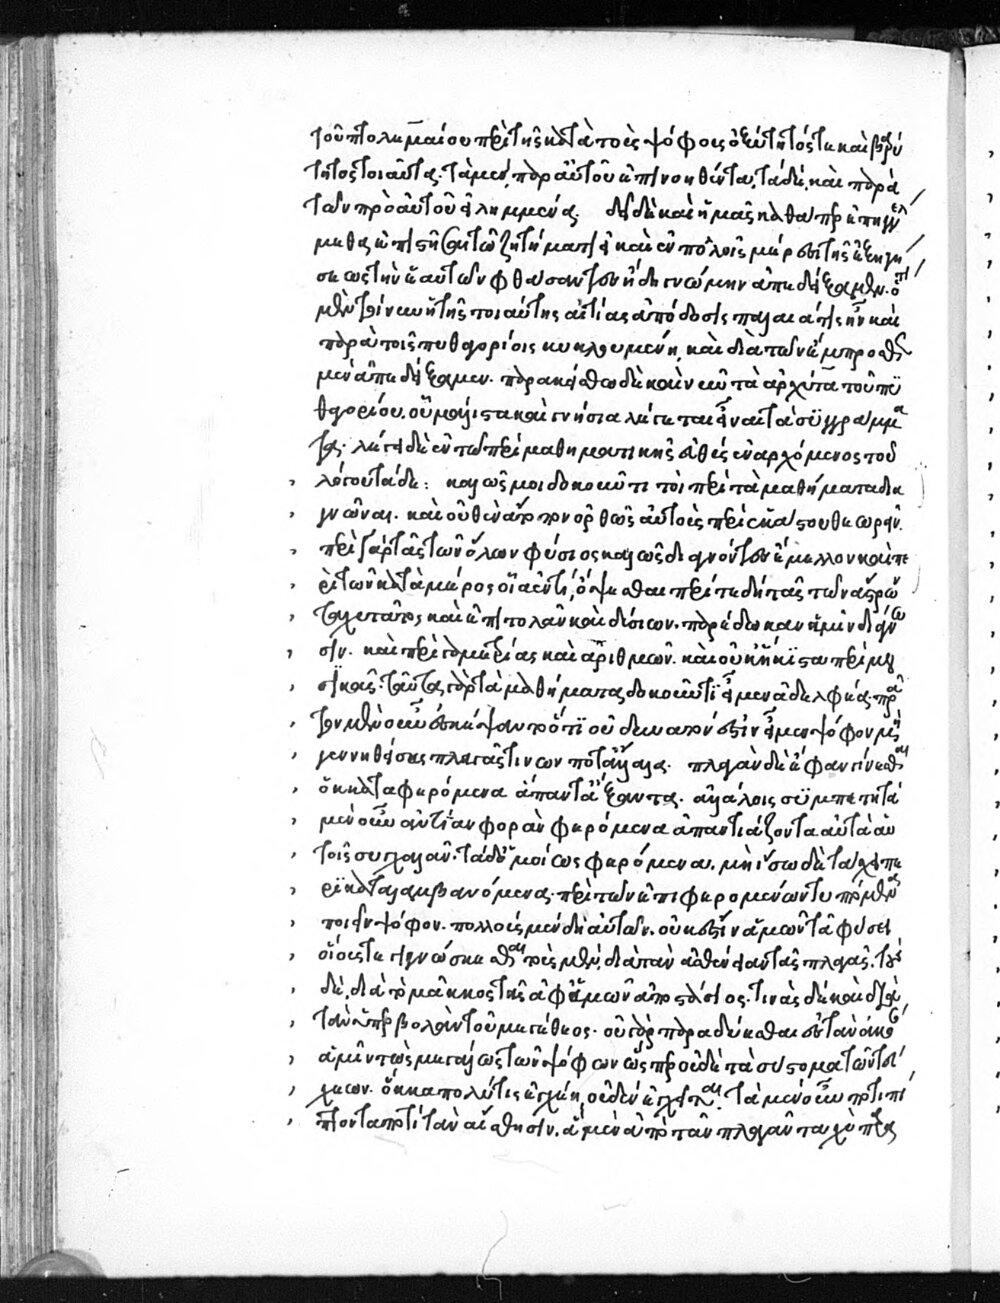 τοῦ πτολεμαίου περὶ τῆς κατὰ τοὺς ψόφους ὀξύτητός τε καὶ βαρύ
τητος τοιαῦτα. τὰ μὲν, παρ αὐτοῦ ἐπινοηθέντα, τὰ δὲ, καὶ παρὰ
τῶν πρὸ αὐτοῦ εἰλημμένα. δεῖ δὲ καὶ ἡμᾶς καθάπερ ἐπηγγει
μεθα ἐπιστῆσαι τῶ ζητήματι εἰ καὶ ἐν πολλοῖς μέρεσι τῆς ἐξηγή
σεως τὴν ἑαυτῶν φθάσαντες ἤδη γνώμην ἀπεδείξαμεν. ὅτι
μὲν τοίνυν ἡ τῆς τοιαύτης αἰτίας ἀπόδοσις παλαιά τις ἦν καὶ
παρὰ τοῖς πυθαγορείοις κυκλουμένη, καὶ διὰ τῶν ἔμπροσθεν
μὲν ἀπεδείξαμεν. παρακείσθω δὲ καὶ νῦν τὰ ἀρχύτα τοῦ πυ
θαγορείου. οὗ μάλιστα καὶ γνήσια λέγεται εἶναι τὰ συγγράμμα
τα. λέγει δὲ ἐν τῶ περὶ μαθηματικῆς εὐθὺς ἐναρχόμενος τοῦ
λόγου τάδε: καλῶς μοι δοκοῦντι τοὶ περὶ τὰ μαθήματα δια
γνῶναι. καὶ οὐθὲν ἄτοπον ὀρθῶς αὐτοὺς περὶ ἑκάστου θεωρεῖν.
περὶ γὰρ τᾶς τῶν ὅλων φύσιος καλῶς διαγνόντες ἔμελλον καὶ πε
ρὶ τῶν κατὰ μέρος οἷα ἐντί, ὄψεσθαι περί τε δὴ τᾶς τῶν ἄστρων
ταχυτᾶτος καὶ ἐπιτολᾶν καὶ δύσιων. παρέδωκαν ἡμῖν διάγνω
σιν. καὶ περὶ γαμετρίας καὶ ἀριθμῶν. καὶ οὐκ ἥκιστα περὶ μου
σικᾶς. ταῦτα γὰρ τὰ μαθήματα δοκοῦντι ἔμεν ἀδελφεά. πρᾶ
τον μὲν οὖν ἐσκέψαντο ὅτι οὐ δυνατόν ἐστιν ἔμεν ψόφον μὴ
γεννηθείσας πλαγᾶς τινων ποτ ἄλλαλα. πλαγὰν δὲ ἔφαν γίνεσθαι
ὅκκα τὰ φερόμενα ἀπαντάξαντα. ἀλλάλοις συμπετη τὰ
μὲν οὖν ἀντίαν φορὰν φερόμενα ἀπαντιάζοντα αὐτὰ αὐ
τοῖς συγχαλᾶν. τὰ δ ὁμοίως φερόμενα, μὴ ἴσω δὲ τάχει πε
ρικαταλαμβανόμενα. περὶ τῶν ἐπιφερομένων τυπτόμενα
ποιεῖν ψόφον. πολλοὺς μὲν δὴ αὐτῶν. οὐκ ἐστὶν ἁμῶν τᾶ φύσει
οἵους τε γινώσκεσθαι τοὺς μὲν, διὰ τὰν ἀσθένειαν τᾶς πλαγᾶς. τοὺς
δὲ, διὰ τὸ μᾶκος τῆς ἀφ ἁμῶν ἀποστάσιος. τινὰς δὲ καὶ διὰ
τὰν ὑπερβολὰν τοῦ μεγέθεος. οὐ γὰρ παραδύεσθαι ἐς τὰν ἀκοὰν
ἁμῖν τὼς μεγάλως τῶν ψόφων ὥσπερ οὐδὲ τὰ σύστομα τῶν τευ
χέων. ὅκκα πολύ τις ἐκχέη, οὐδὲν ἐκχεῖται. τὰ μὲν οὖν ποτιπί
πτοντα ποτὶ τὰν αἴσθησιν. ἃ μὲν ἀπὸ τᾶν πλαγᾶν ταχὺ πα